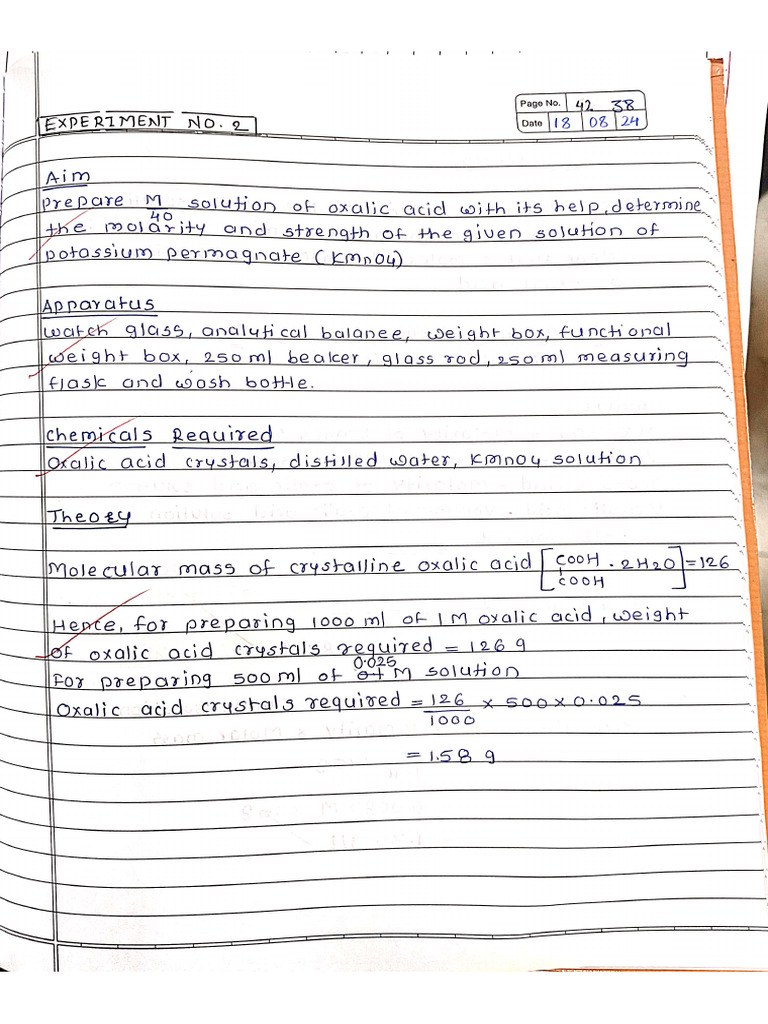 Page No. 42 38
EXPERIMENT NO. 2
Date 18 08 24
Aim
Prepare M/40 solution of oxalic acid with its help, determine
the molarity and strength of the given solution of
potassium permagnate (KMnO4)
Apparatus
Watch glass, analytical balance, weight box, functional
weight box, 250 ml beaker, glass rod, 250 ml measuring
flask and wash bottle.
Chemicals Required
Oxalic acid crystals, distilled water, KMnO4 solution
Theory
Molecular mass of crystalline oxalic acid [COOH . 2H2O] = 126
COOH
Hence, for preparing 1000 ml of 1 M oxalic acid, weight
of oxalic acid crystals required = 126 g
0.025
For preparing 500 ml of 0.1 M solution
Oxalic acid crystals required = 126/1000 × 500 × 0.025
= 1.58 g